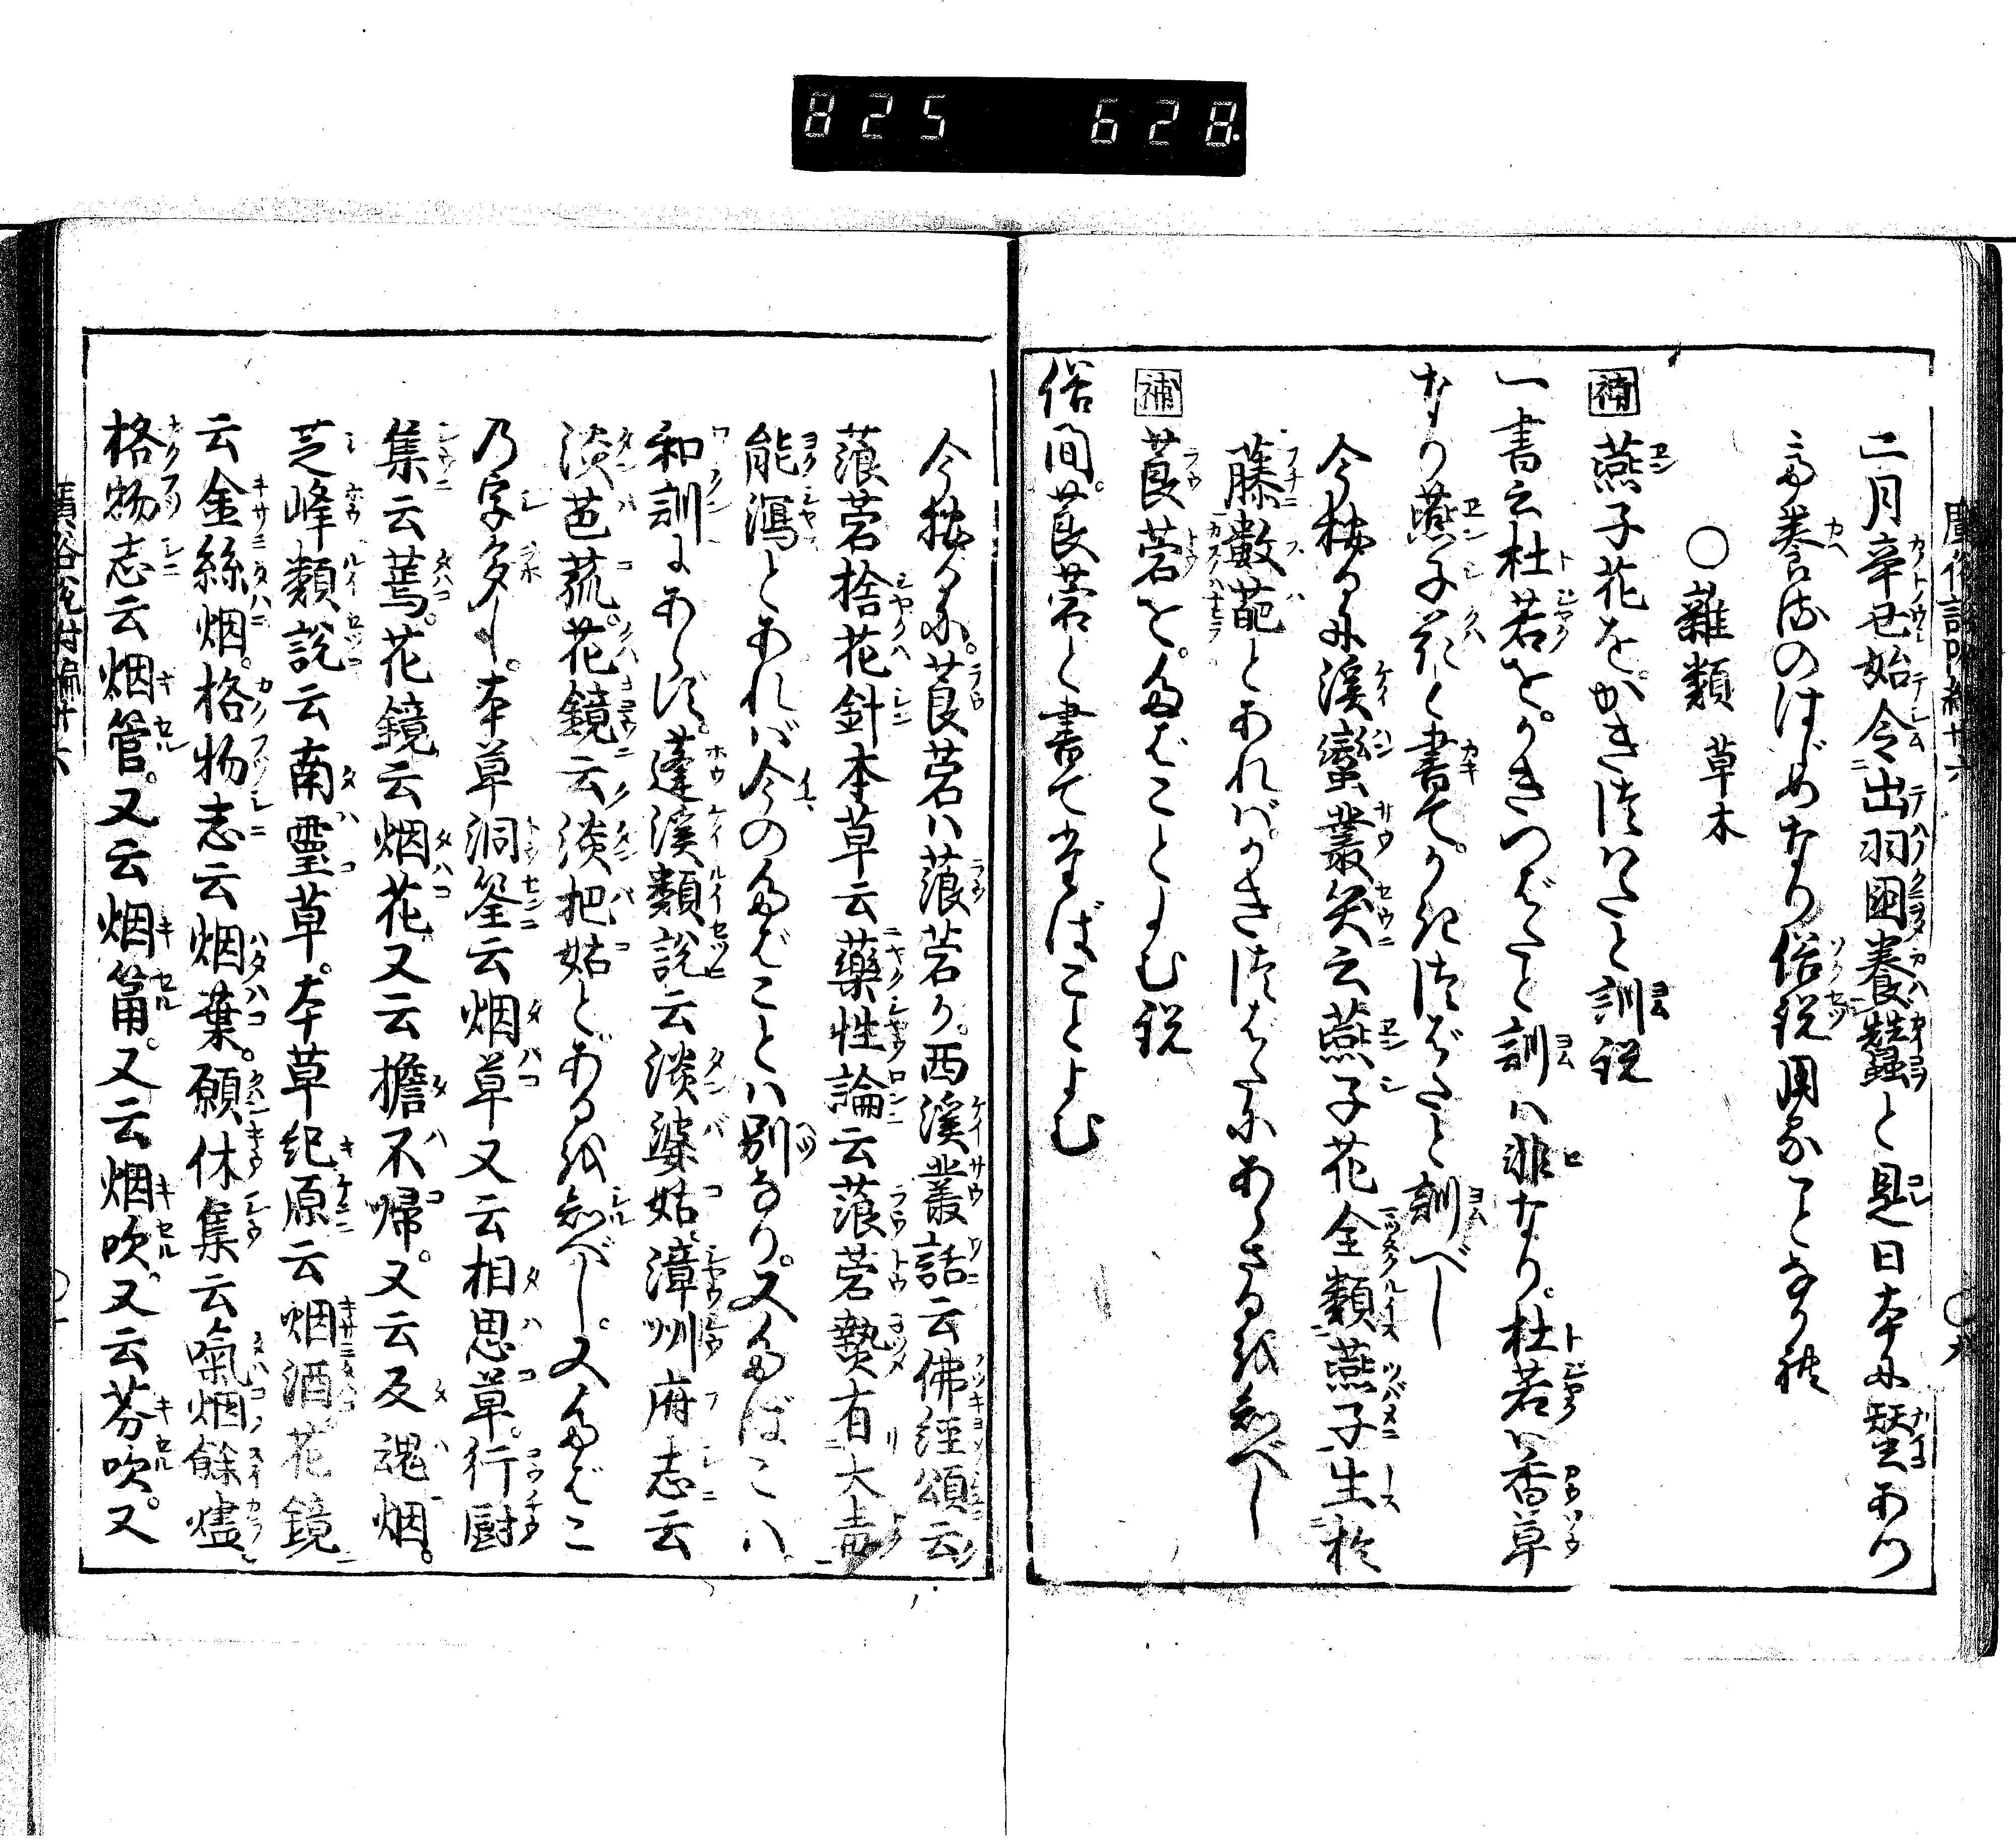 825 628
二月辛丑始令出羽國養蠶と是日本に蚕あつ
て養法のはじめなり俗説用ることなかれ
○雜類 草木
補 燕子花をかきつばたと訓説
一書云杜若をかきつばたと訓ハ非なり。杜若ハ香草
なり燕子花と書てかきつばたと訓べし
今按るに溪蠻叢笑云燕子花全類燕子生於
藤數葩とあれバかきつばたにあらざるを知べし
補 莨菪を。たばことよむ説
俗間。莨菪と書てたばことよむ
今按るに。莨菪ハ蒗菪か。西溪叢話云佛経頌云
蒗菪捨花針本草云藥性論云蒗菪熱有大毒
能瀉とあれバ今のたばことハ別なり。又たばこハ
和訓にあらず。蓬溪類説云淡婆姑。漳州府志云
淡芭菰。花鏡云淡把姑と。ある を知べし。又たばこ
乃字多し。本草洞筌云烟草又云相思草。行厨
集云蔫。花鏡云烟花又云擔不歸。又云反魂烟。
芝峰類説云南靈草。本草紀原云烟酒花鏡
云金絲烟。格物志云烟葉。願休集云氣烟餘燼
格物志云烟管。又云烟筩。又云烟吹。又云芬吹。又